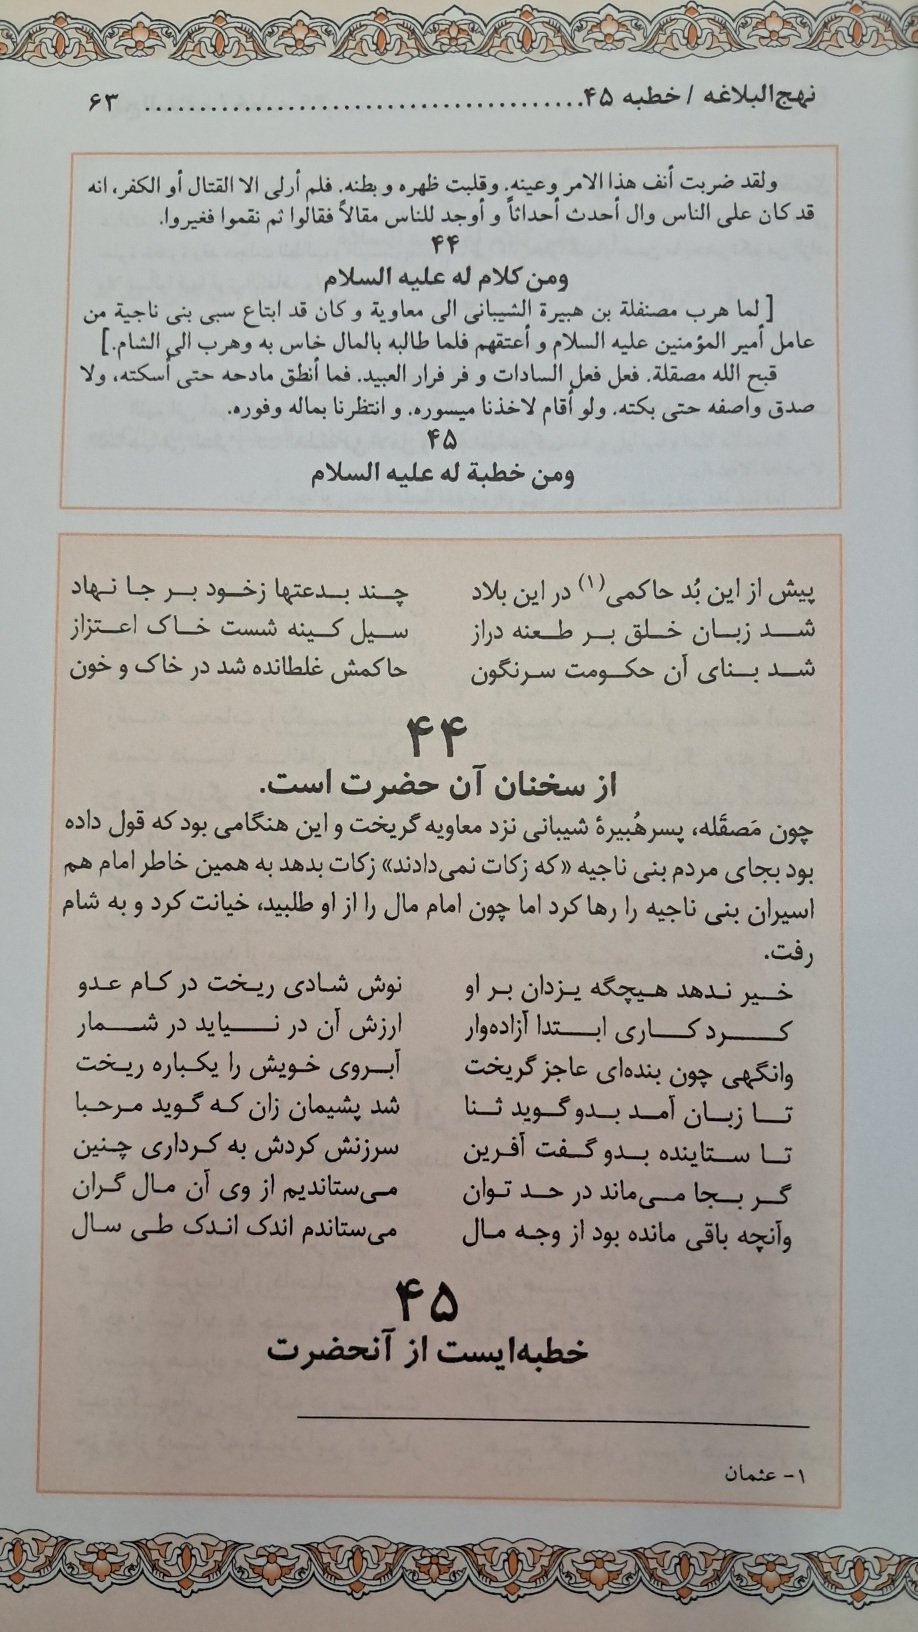 نهج‌البلاغه / خطبه ۴۵........................................ ۶۳
ولقد ضربت أنف هذا الامر وعینه. وقلبت ظهره و بطنه. فلم أرلی الا القتال أو الکفر، انه
قد کان علی الناس وال أحدث أحداثاً و أوجد للناس مقالاً فقالوا ثم نقموا فغیروا.
۴۴
ومن کلام له علیه السلام
[ لما هرب مصنفلة بن هبیرة الشیبانی الی معاویة و کان قد ابتاع سبی بنی ناجیة من
عامل أمیر المؤمنین علیه السلام و أعتقهم فلما طالبه بالمال خاس به وهرب الی الشام.]
قبح الله مصقلة. فعل فعل السادات و فر فرار العبید. فما أنطق مادحه حتی أسکته، ولا
صدق واصفه حتی بکته. ولو أقام لاخذنا میسوره. و انتظرنا بماله وفوره.
۴۵
ومن خطبة له علیه السلام
پیش از این بُد حاکمی(۱) در این بلاد چند بدعتها زخود بر جا نهاد
شد زبان خلق بر طعنه دراز سیل کینه شست خاک اعتزاز
شد بنای آن حکومت سرنگون حاکمش غلطانده شد در خاک و خون
۴۴
از سخنان آن حضرت است.
چون مَصقَله، پسرهُبیرهٔ شیبانی نزد معاویه گریخت و این هنگامی بود که قول داده
بود بجای مردم بنی ناجیه «که زکات نمی‌دادند» زکات بدهد به همین خاطر امام هم
اسیران بنی ناجیه را رها کرد اما چون امام مال را از او طلبید، خیانت کرد و به شام
رفت.
خیر ندهد هیچگه یزدان بر او نوش شادی ریخت در کام عدو
کرد کاری ابتدا آزاده‌وار ارزش آن در نیاید در شمار
وانگهی چون بنده‌ای عاجز گریخت آبروی خویش را یکباره ریخت
تا زبان آمد بدو گوید ثنا شد پشیمان زان که گوید مرحبا
تا ستاینده بدو گفت آفرین سرزنش کردش به کرداری چنین
گر بجا می‌ماند در حد توان می‌ستاندیم از وی آن مال گران
وآنچه باقی مانده بود از وجه مال می‌ستاندم اندک اندک طی سال
۴۵
خطبه‌ایست از آنحضرت
۱- عثمان